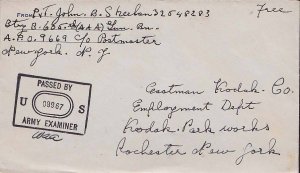 FROM Pvt. John. B. Sheehan 32548283
Free
Btry B. 635 (AAA) Gun. Bn.
A.P.O. 9669 C/o Postmaster
New York. N. Y
PASSED BY
U S
ARMY EXAMINER
Eastman Kodak. Co.
Employement Dept
Kodak. Park works
Rochester New York